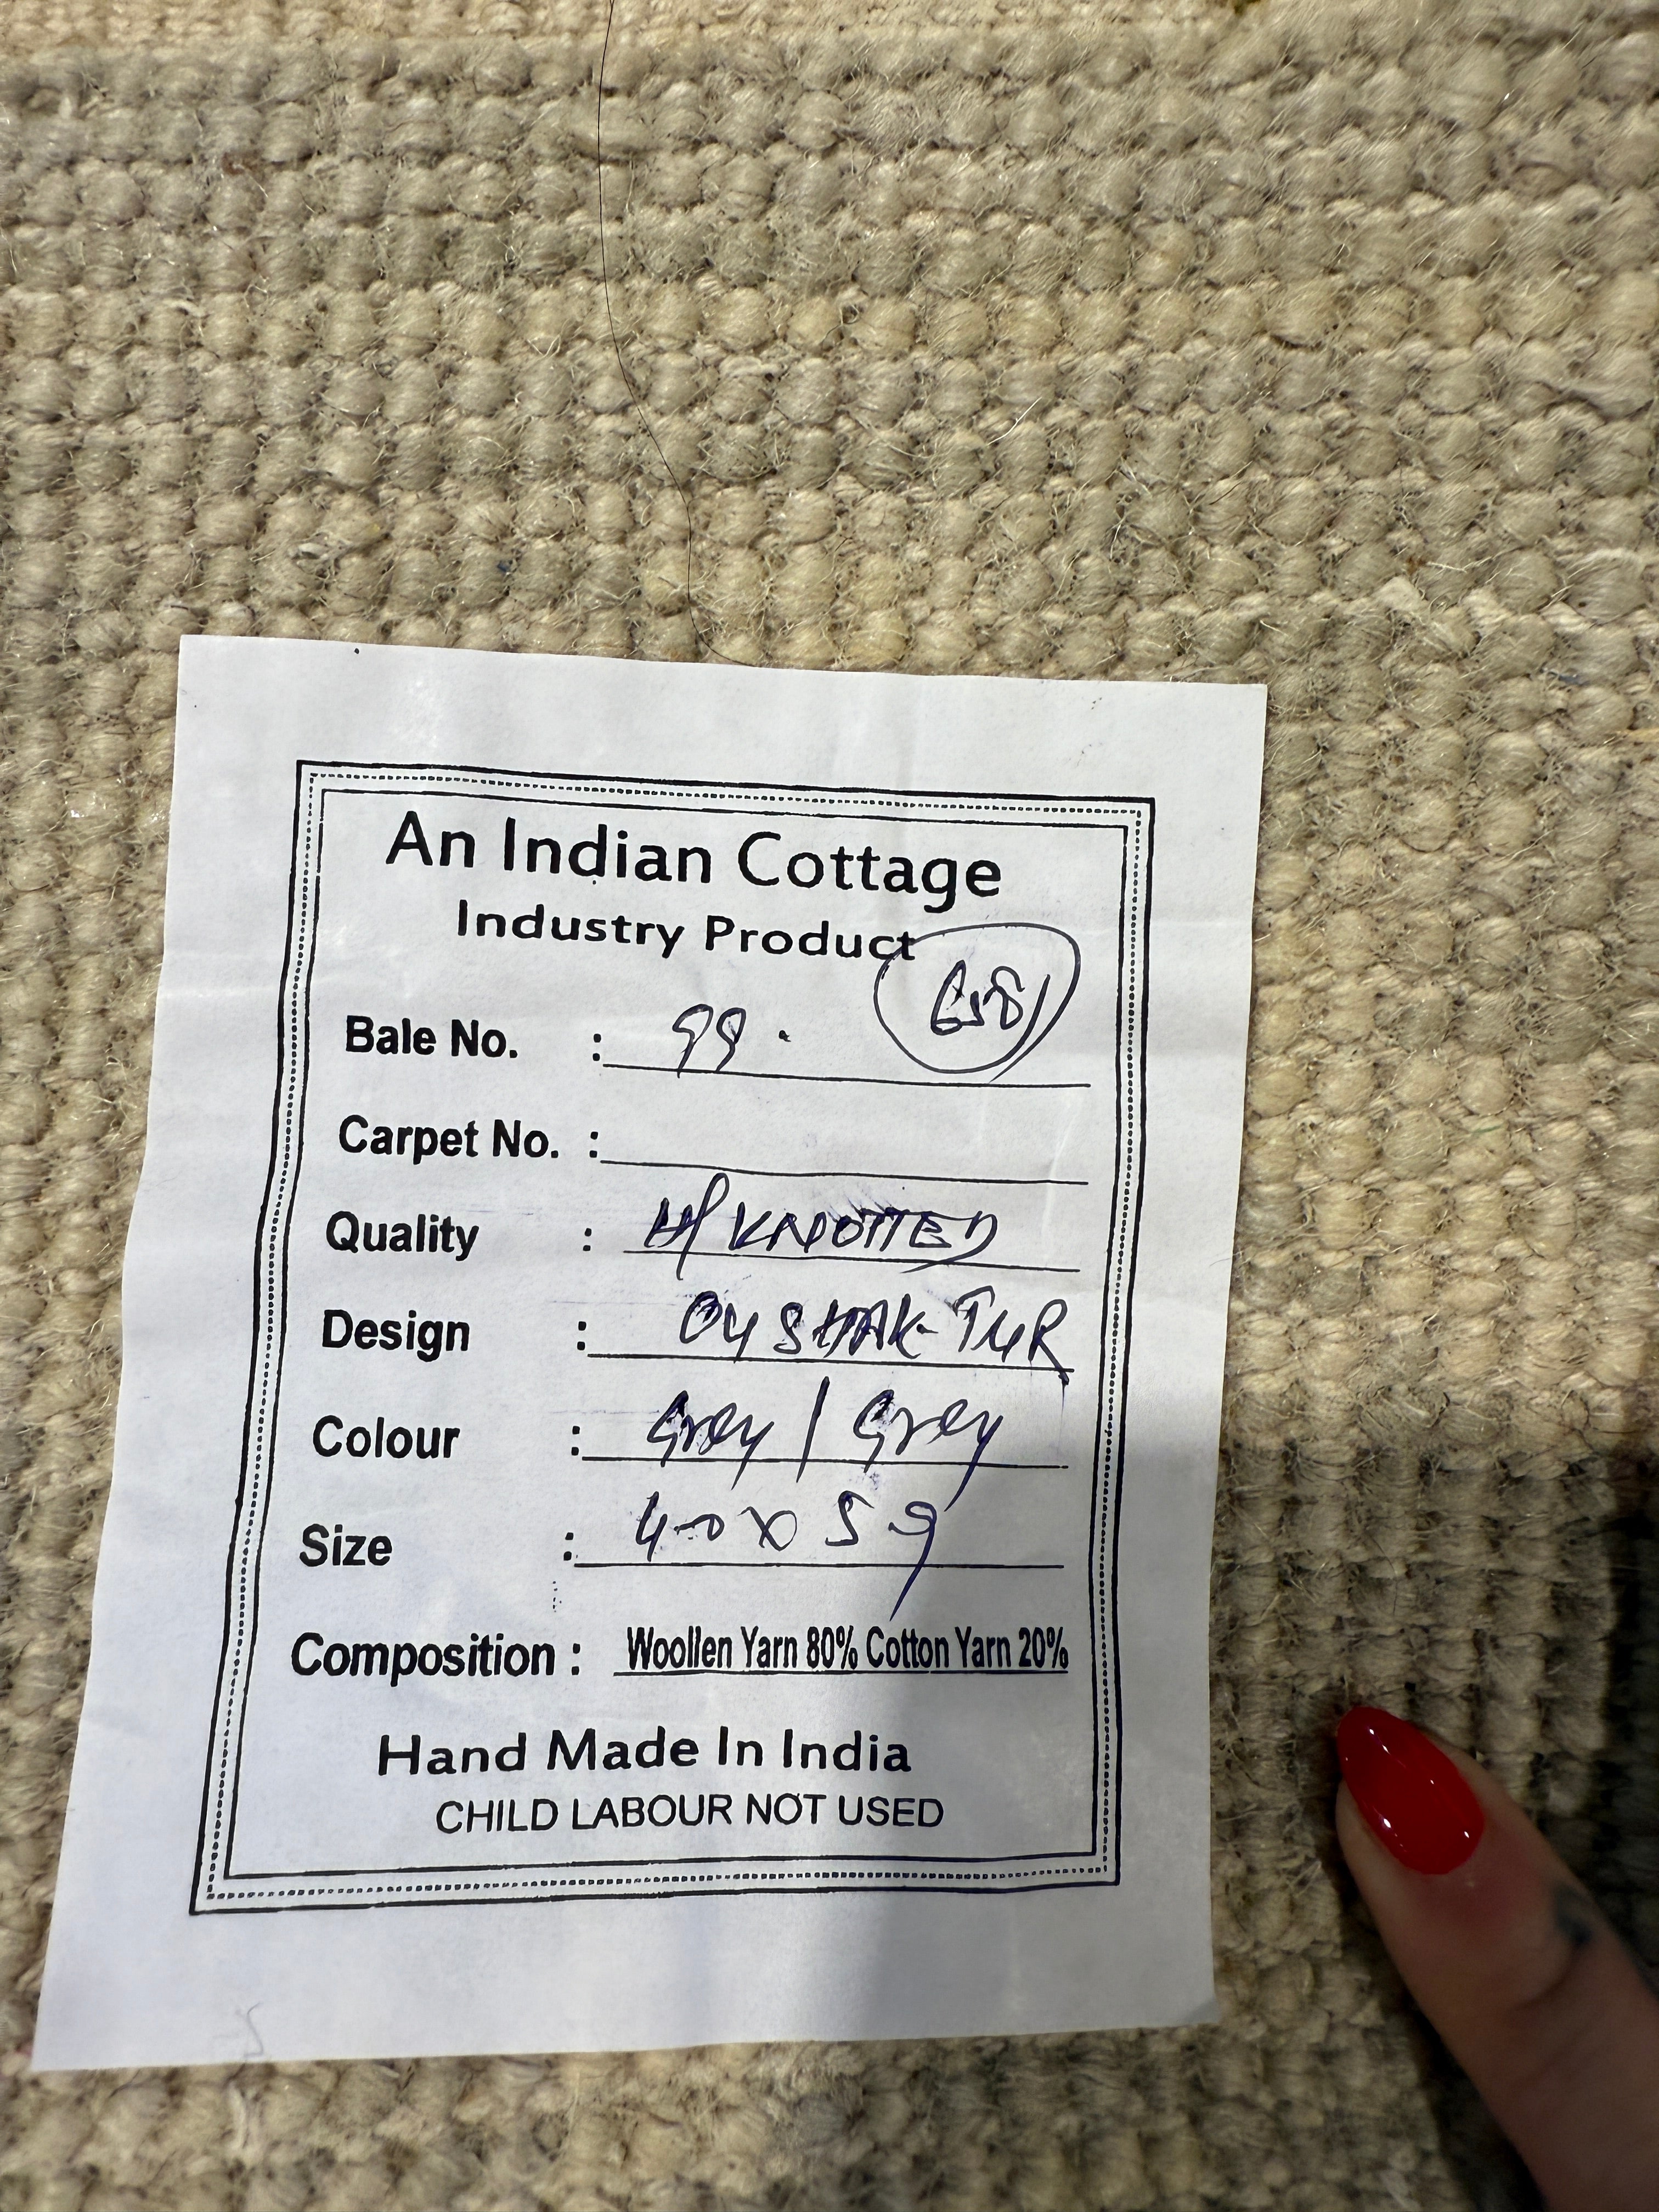 An Indian Cottage
Industry Product
Bale No. : 99.
Carpet No. :
Quality : H/KNOTTED
Design : OUSHAK-TUR
Colour : Grey / Grey
Size : 4-0 x 5 9
Composition : Woollen Yarn 80% Cotton Yarn 20%
Hand Made In India
CHILD LABOUR NOT USED